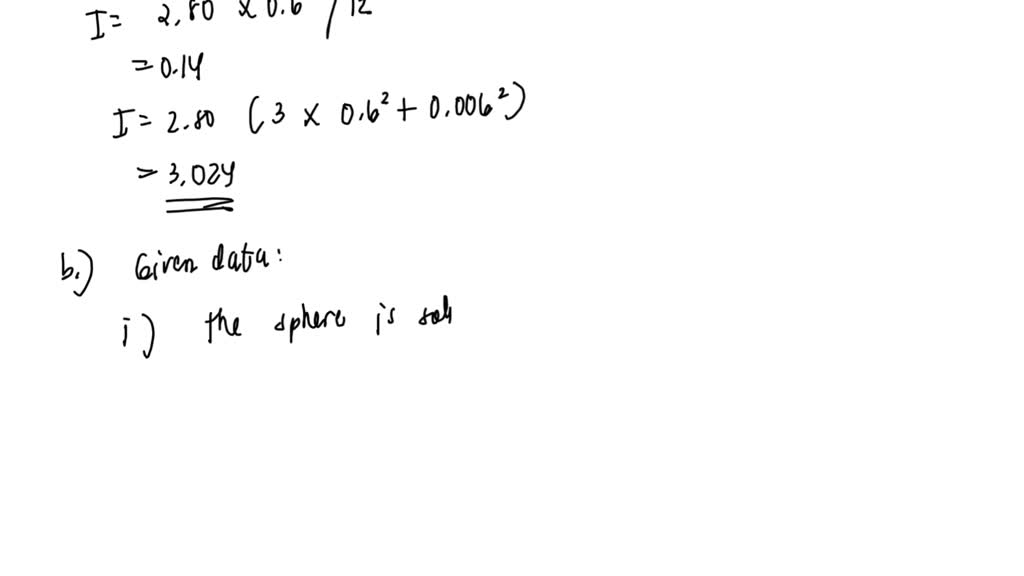 I= 2.80 x 0.6 / 12
= 0.14
I= 2.80 (3 x 0.6² + 0.006²)
= 3.024
b.) Given data:
i) the sphere is sol